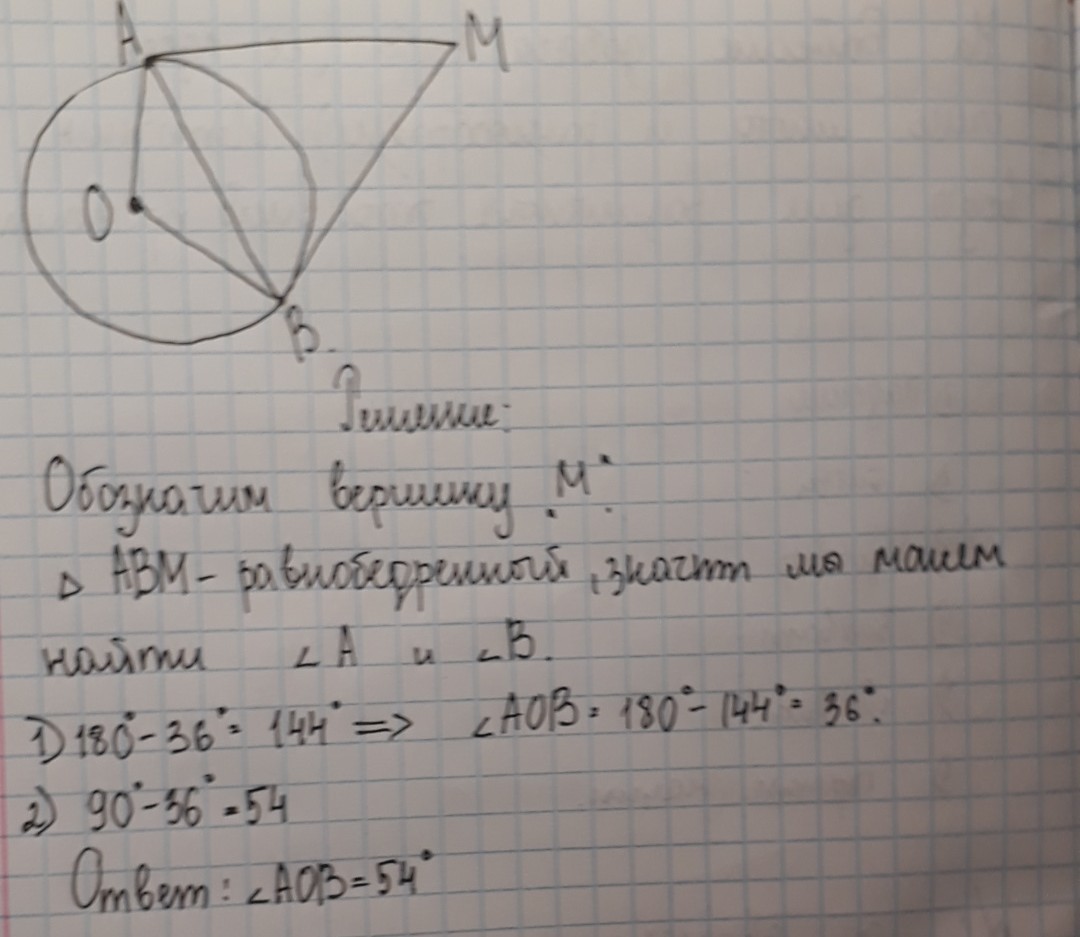 A
M
O
B
Решение:
Обозначим вершину „М“.
△ ABM - равнобедренный, значит мы можем
найти ∠A и ∠B.
1) 180° - 36° = 144° => ∠AOB = 180° - 144° = 36°.
2) 90° - 36° = 54
Ответ: ∠AOB = 54°